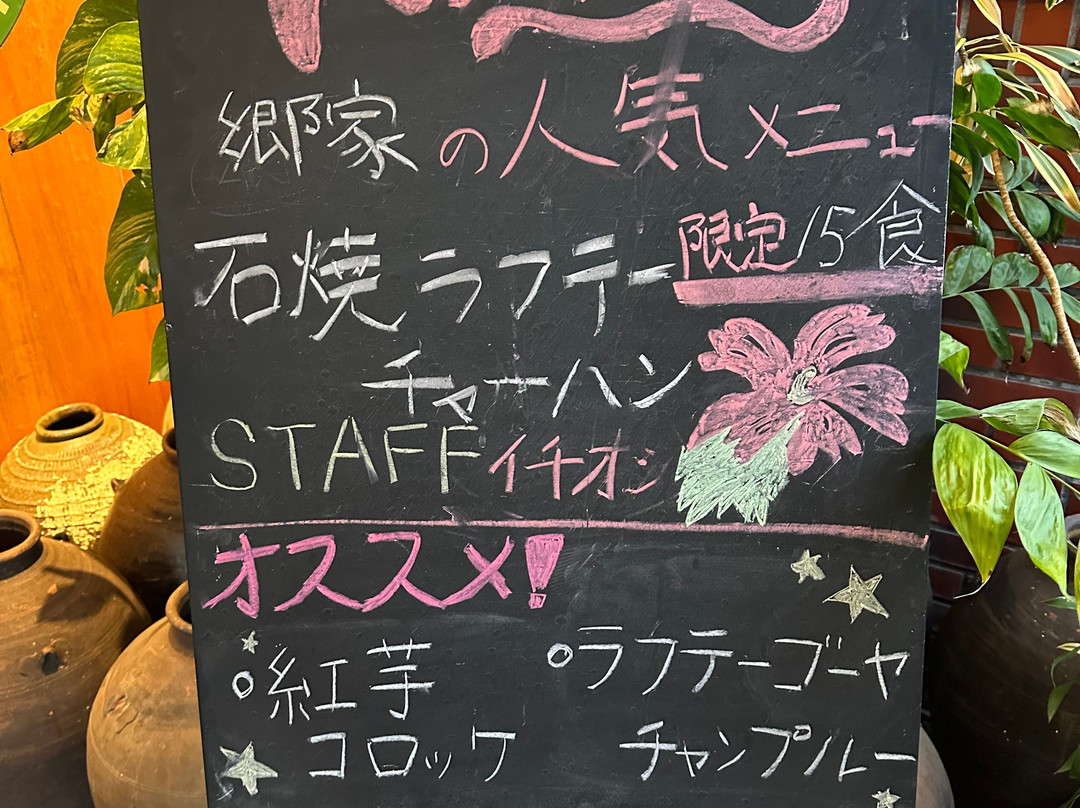 郷家の人気メニュー
石焼ラフテー限定15食
チャーハン
STAFFイチオシ
オススメ!
○紅芋 ○ラフテーゴーヤ
コロッケ チャンプルー